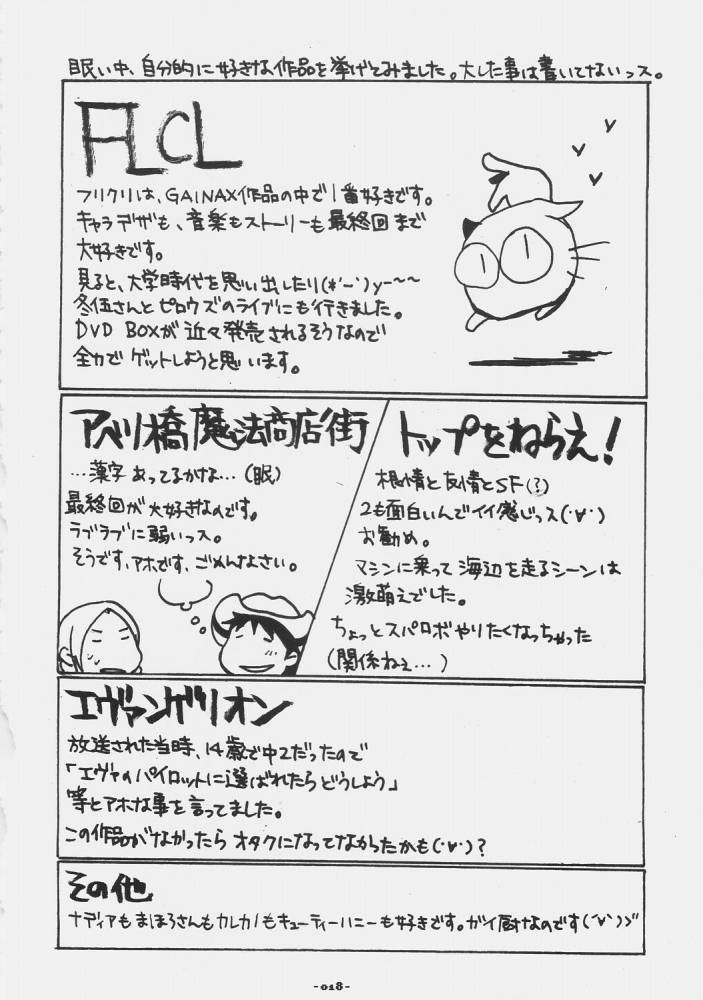 眠い中、自分的に好きな作品を挙げてみました。大した事は書いてないっス。
FLCL
フリクリは、GAINAX作品の中で1番好きです。
キャラデザも、音楽もストーリーも最終回まで
大好きです。
見ると、大学時代を思い出したり(*'ー`)y-~~
冬伍さんとピロウズのライブにも行きました。
DVD BOXが近々発売されるそうなので
全力でゲットしようと思います。
アベノ橋魔法商店街
…漢字あってるかな…(眠)
最終回が大好きなのです。
ラブラブに弱いっス。
そうです、アホです、ごめんなさい。
トップをねらえ!
根情と友情とSF(?)
2も面白いんでイイ感じっス(・∀・)
お勧め。
マシンに乗って海辺を走るシーンは
激萌えでした。
ちょっとスパロボやりたくなっちゃった
(関係ねぇ…)
エヴァンゲリオン
放送された当時、14歳で中2だったので
「エヴァのパイロットに選ばれたらどうしよう」
等とアホな事を言ってました。
この作品がなかったらオタクになってなかったかも(・∀・)?
その他
ナディアもまほろさんもカレカノもキューティーハニーも好きです。ガイ厨なのです(´∀`)ゞ
-018-